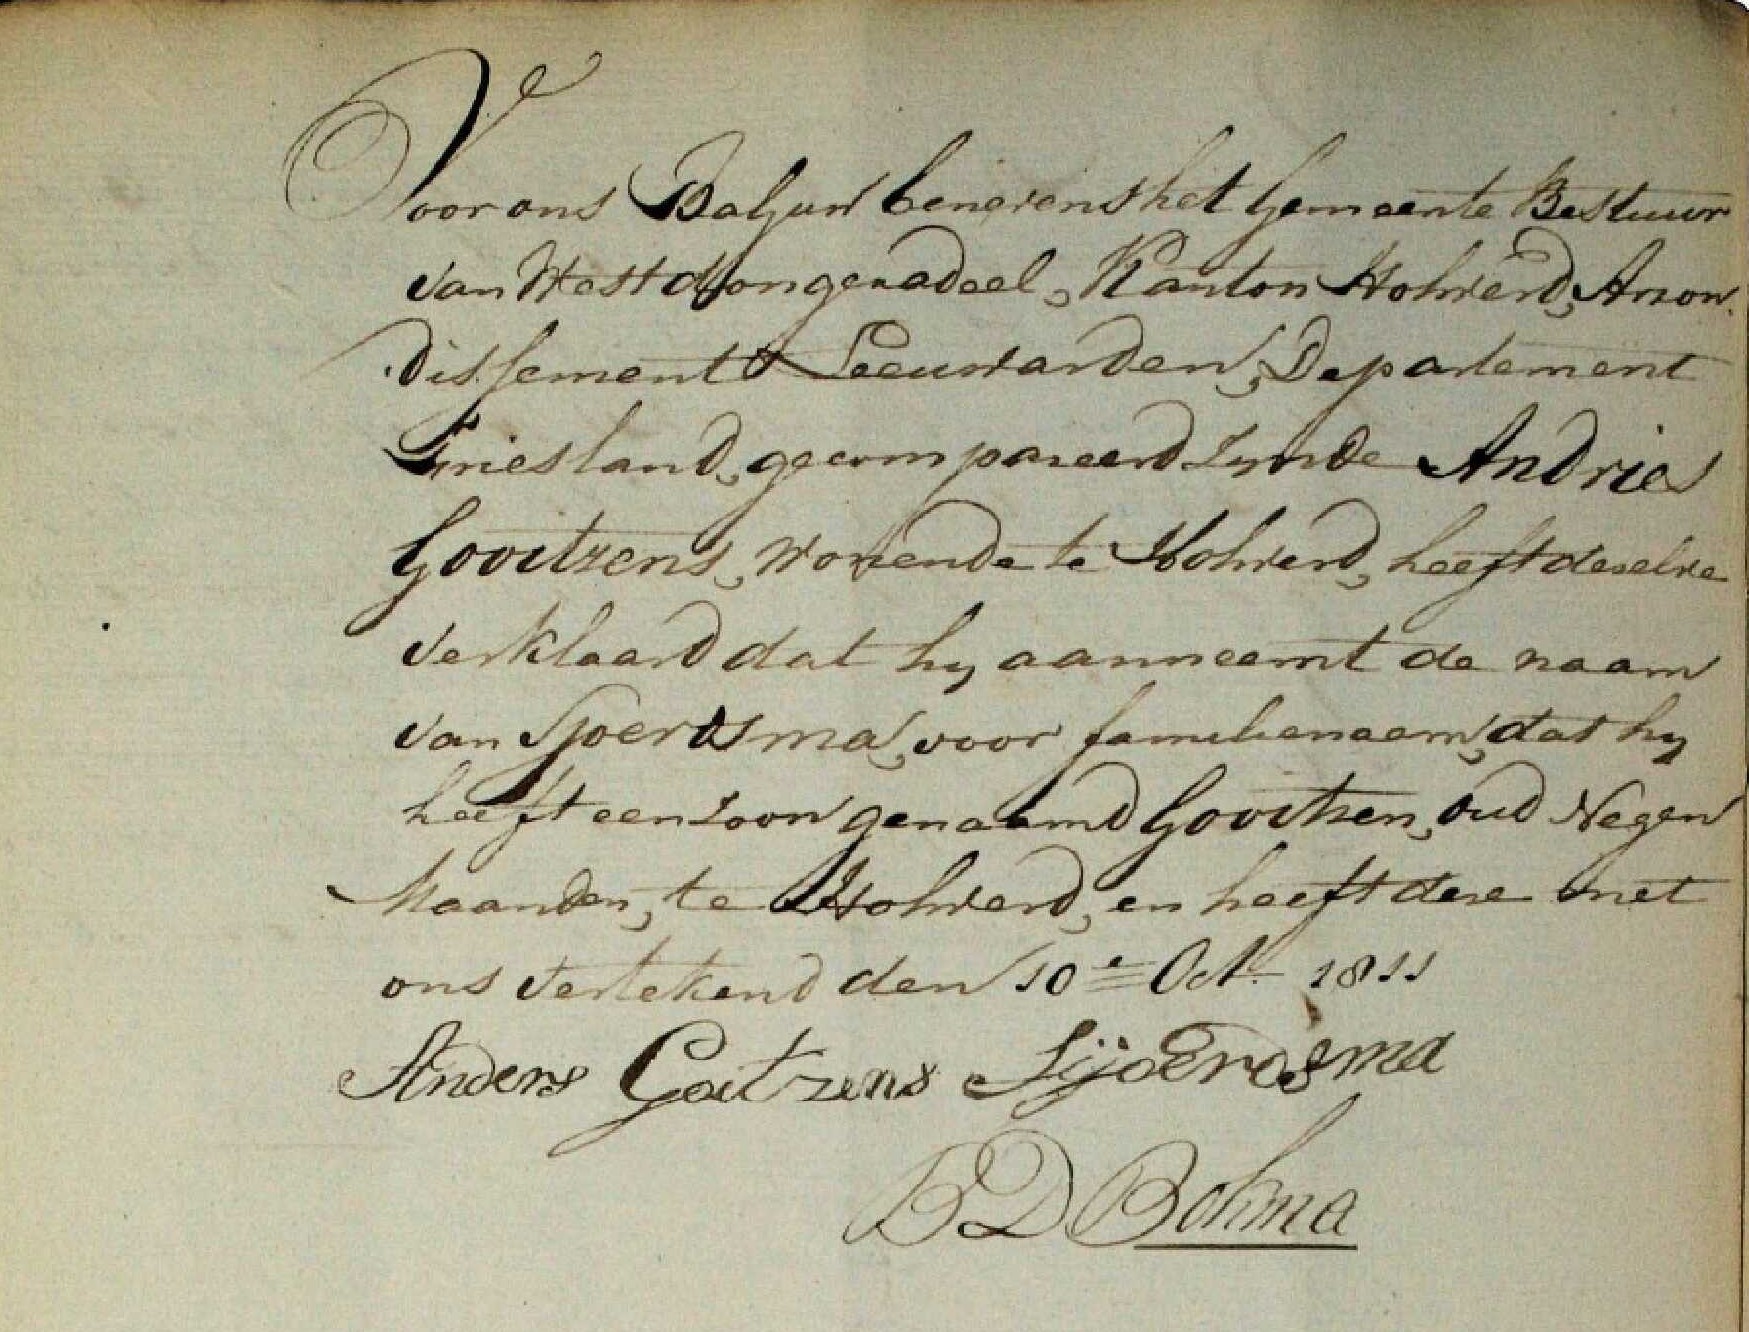 Voor ons Baljuw benevens het Gemeente Bestuur
van Westdongeradeel, Kanton Holwerd, Arron
dissement Leeuwarden, Departement
Friesland, gecompareerd zynde Andries
Gooitzens, wonende te Holwerd, heeft deselve
verklaard dat hy aanneemt de naam
van Sjoerdsma, voor familienaam, dat hy
heeft een zoon genaamd Gooitzen, oud Negen
Maanden, te Holwerd, en heeft dese met
ons vertekend den 10e Oct. 1811
Anders Goitzens Sijoerdsma
B D Bolma